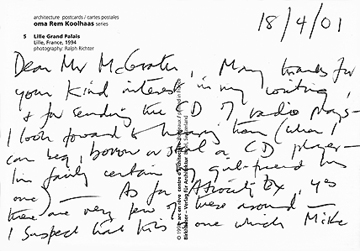 architecture postcards / cartes postales
oma Rem Koolhaas series
5 Lille Grand Palais
Lille, France, 1994
photography: Ralph Richter
18/4/01
Dear Mr McGrath, Many thanks for
your kind interest in my writing,
& for sending the CD of radio plays –
I look forward to hearing them (when I
can beg, borrow or steal a CD player –
I'm fairly certain my girlfriend has
one) – As for Atrocity Ex, yes
there are very few of these around –
I suspect that this is one which Mike